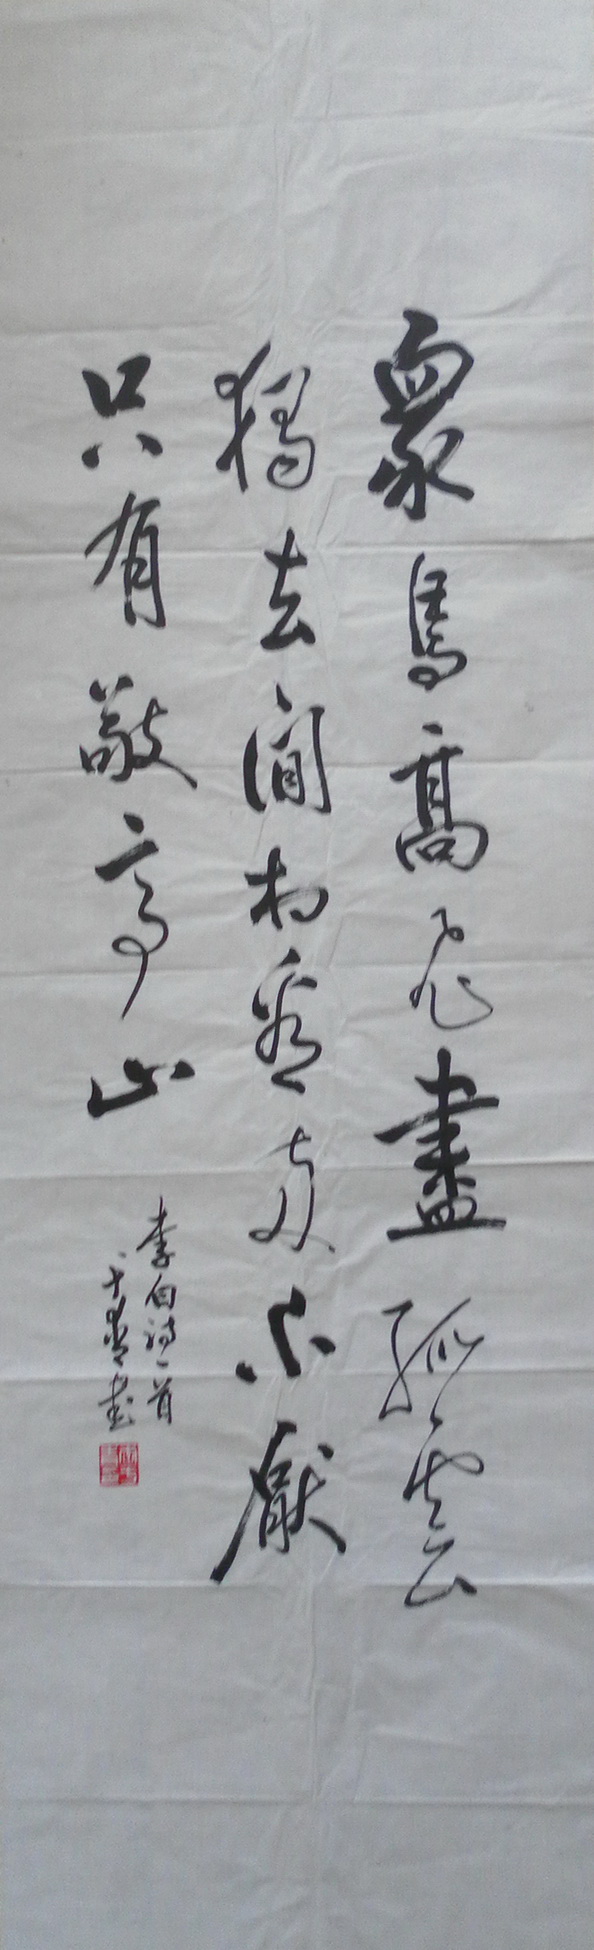 衆鳥高飛盡孤雲
獨去閒相看兩不厭
只有敬亭山
李白詩一首
書